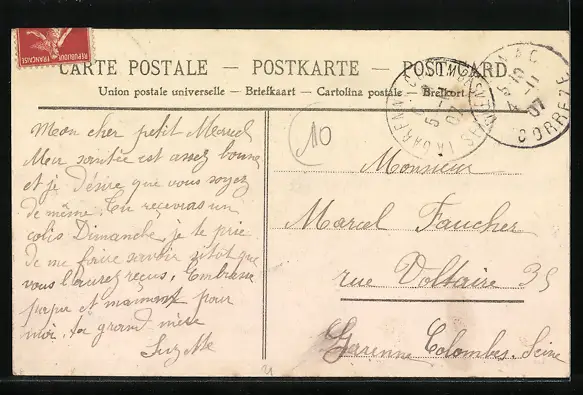 REPUBLIQUE FRANÇAISE
CARTE POSTALE — POSTKARTE — POSTCARD
Union postale universelle — Briefkaart — Cartolina postale — Brefkort
10
Mon cher petit Marcel
Ma santée est assez bonne
et je désire que vous soyez
de même. Tu recevras un
colis Dimanche, je te prie
de me faire savoir sitôt que
vous l'aurez reçus. Embrasse
papa et maman pour
moi. ta grand mère
Suzette
Monsieur
Marcel Faucher
rue Voltaire 35
Garenne Colombes. Seine
LA GARENNE-COLOMBES
07
CORREZE
11
07